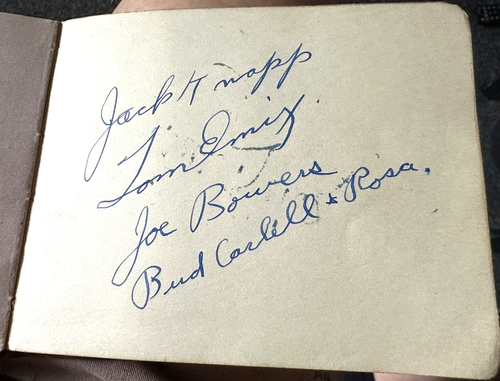 Jack Knapp
Tom Emix.
Joe Bowers
Bud Carlell & Rosa.